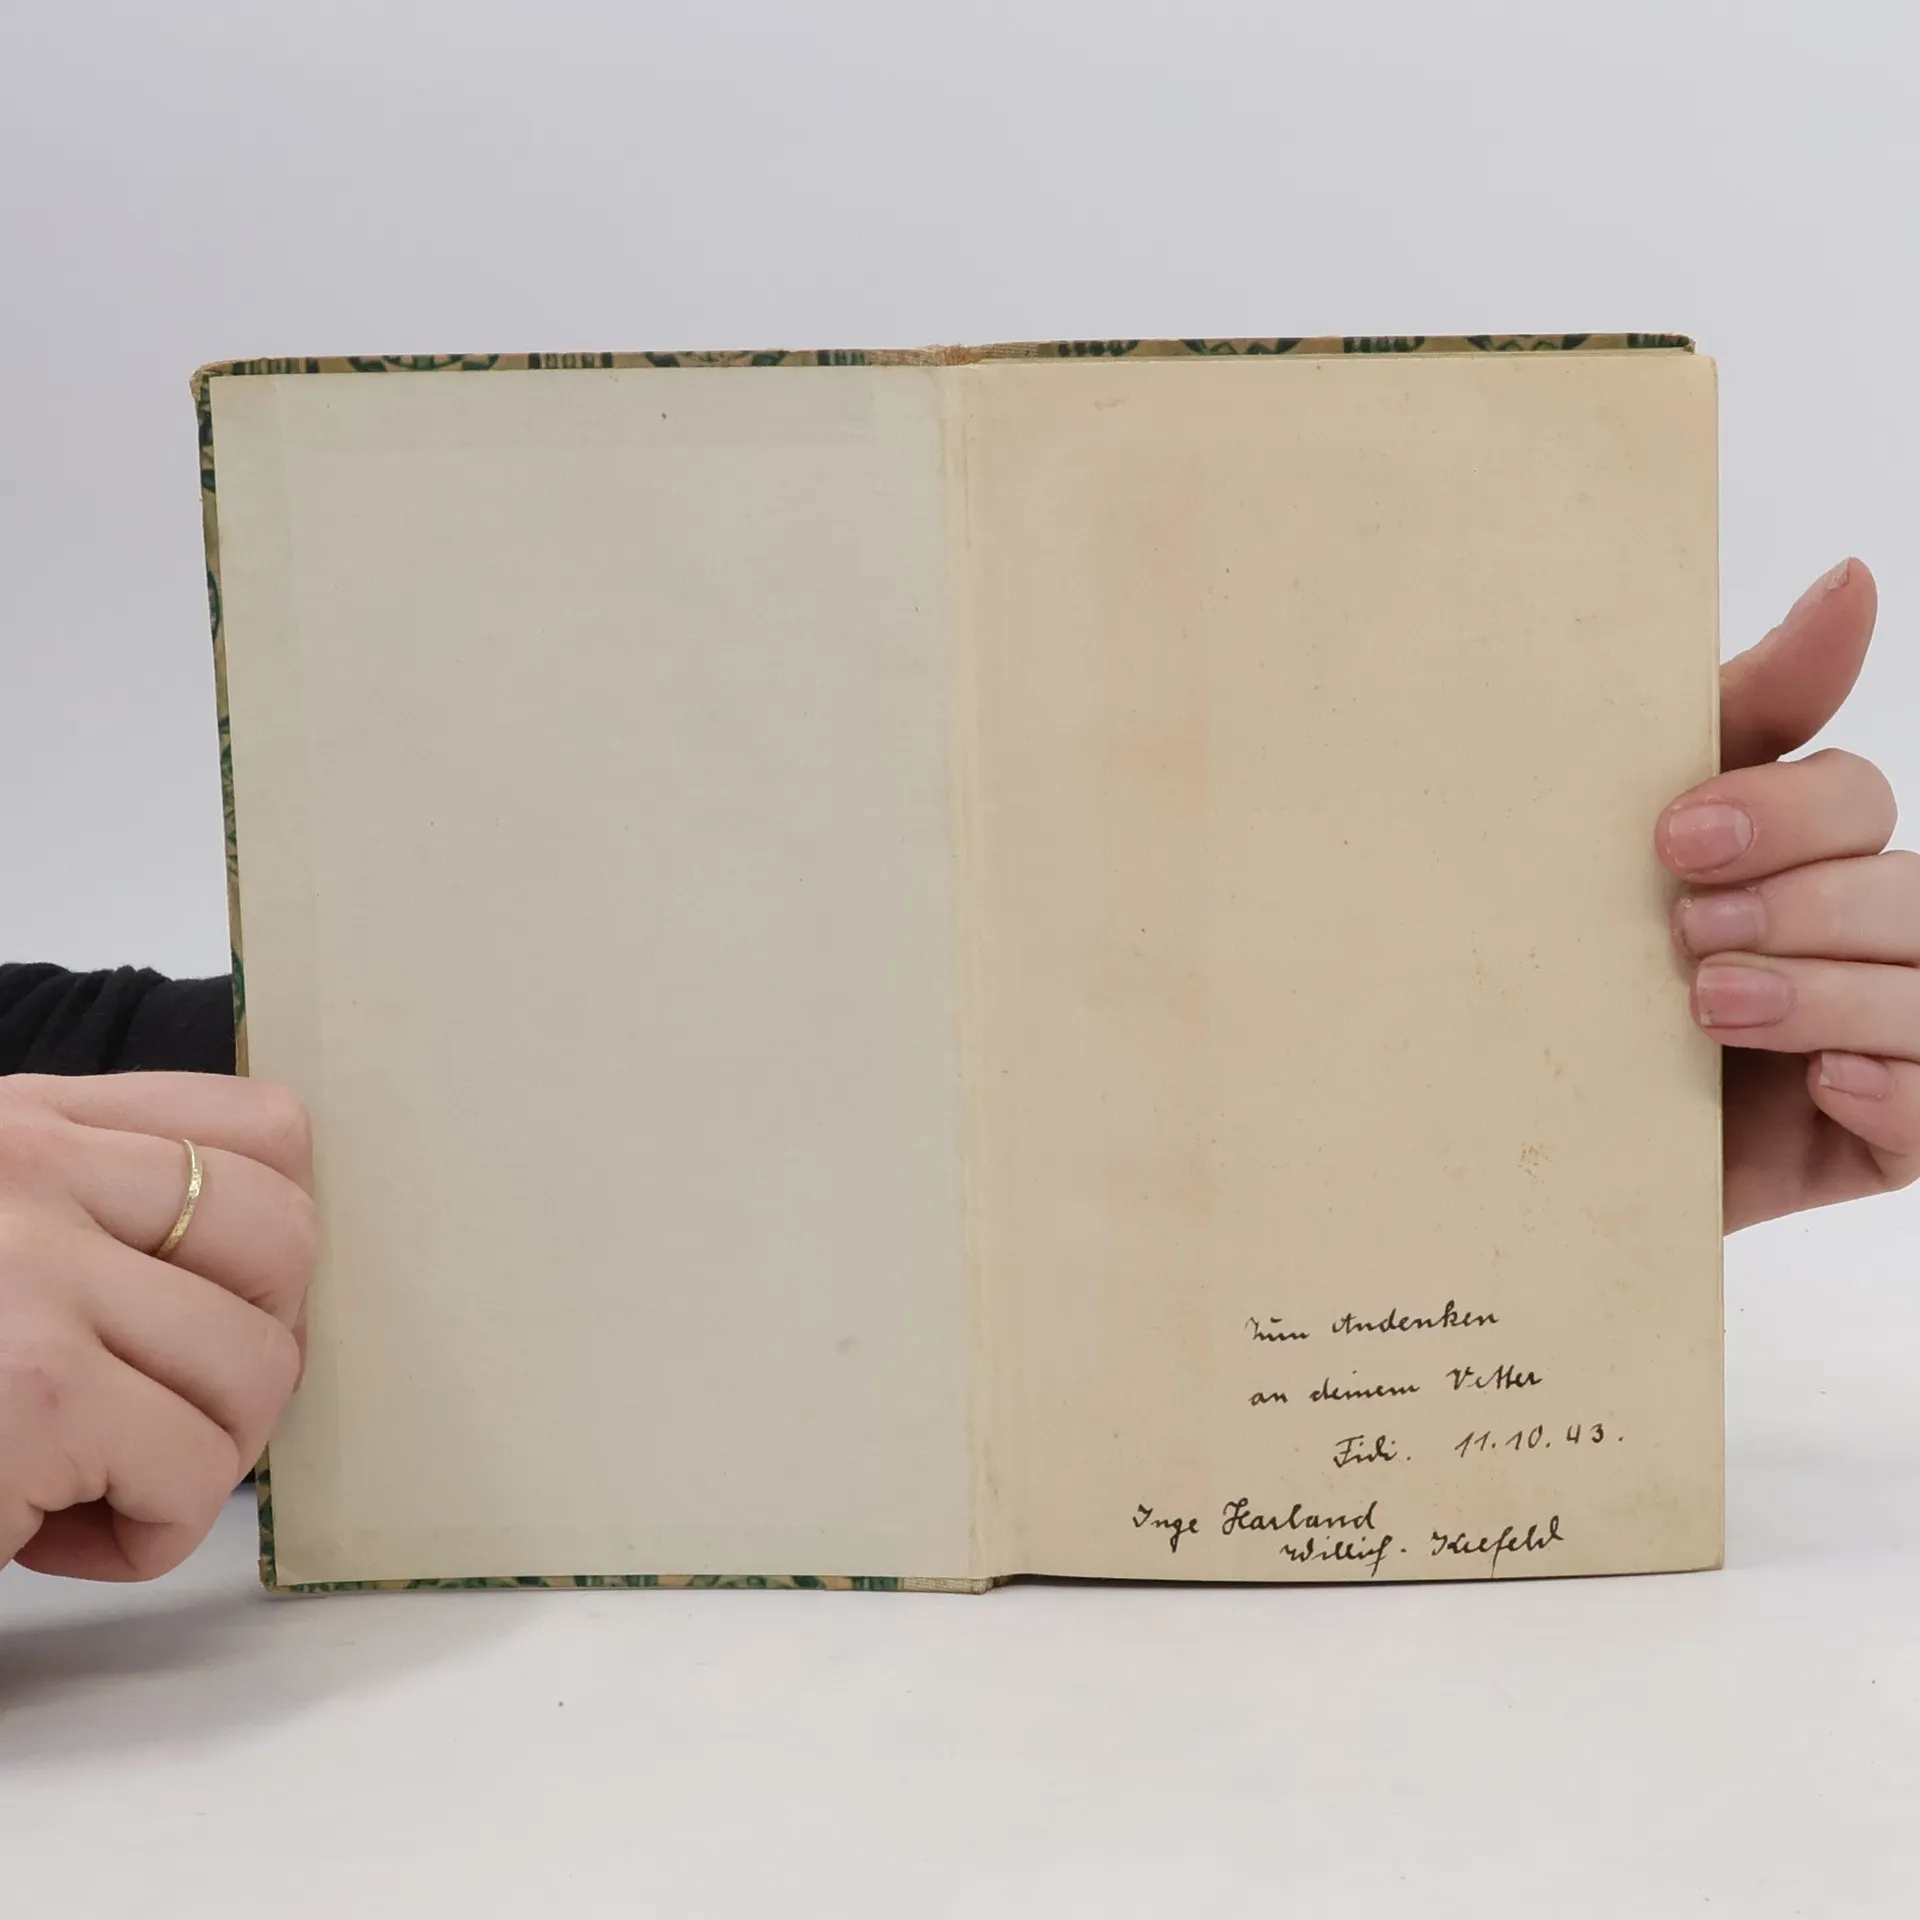 Zum Andenken
an deinem Vetter
Fidi. 11.10.43.
Inge Harland
Willich. Krefeld